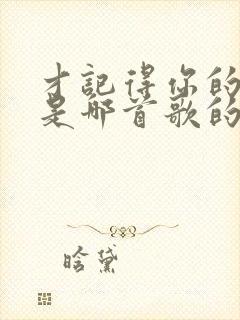 才记得你的
是哪首歌的
晗黛